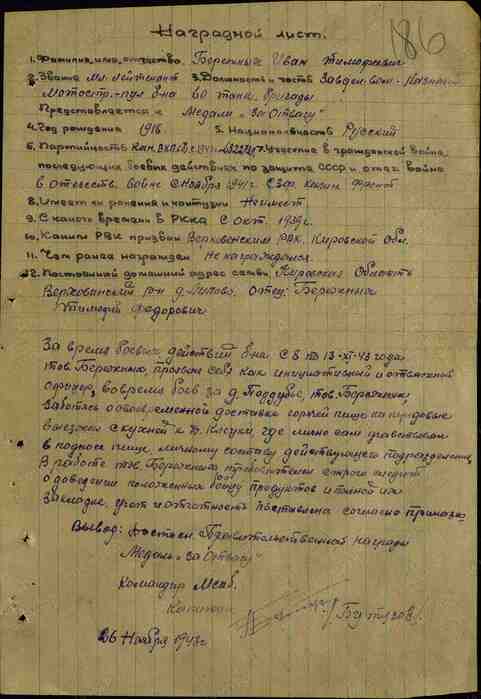 186
Наградной лист.
1. Фамилия, имя, отчество Бережных Иван Тимофеевич
2. Звание Мл. лейтенант 3. Должность и часть Завдел. бат. - Казначей
Мотостр.-пул. б-на 60 танк. бригады
Представляется к Медали "За Отвагу"
4. Год рождения 1916 5. Национальность Русский
6. Партийность Кан. ВКП(б) с 7. Участие в гражданской войне,
последующих боевых действиях по защите СССР и отеч. войне
в отечеств. войне с ноября 1941 г.
8. Имеет ли ранения и контузии Не имеет
9. С какого времени в РККА с окт. 1939 г.
10. Каким РВК призван Верховенским РВК, Кировской обл.
11. Чем ранее награжден Не награждался
12. Постоянный домашний адрес семьи: Кировская область
Верховинский р-н д. Отец: Бережных
Тимофей Федорович
За время боевых действий б-на с 8 по 13-XI-43 года
тов. Бережных, проявил себя как инициативный и отважный
офицер, во время боев за д. Поддубье, тов. Бережных,
заботясь о своевременной доставке горячей пищи на передовые
выезжал с кухней к д. где лично сам участвовал
в подноске пищи, личному составу действующего подразделения.
В работе тов. Бережных требователен строго следит
о доведении положенных бойцу продуктов и полной их
закладке, учет и отчетность поставлена согласно приказа.
Вывод: Достоин Правительственной награды
Медаль "За Отвагу"
Командир Мспб.
Капитан /Бутусов/.
26 Ноября 1943 г.